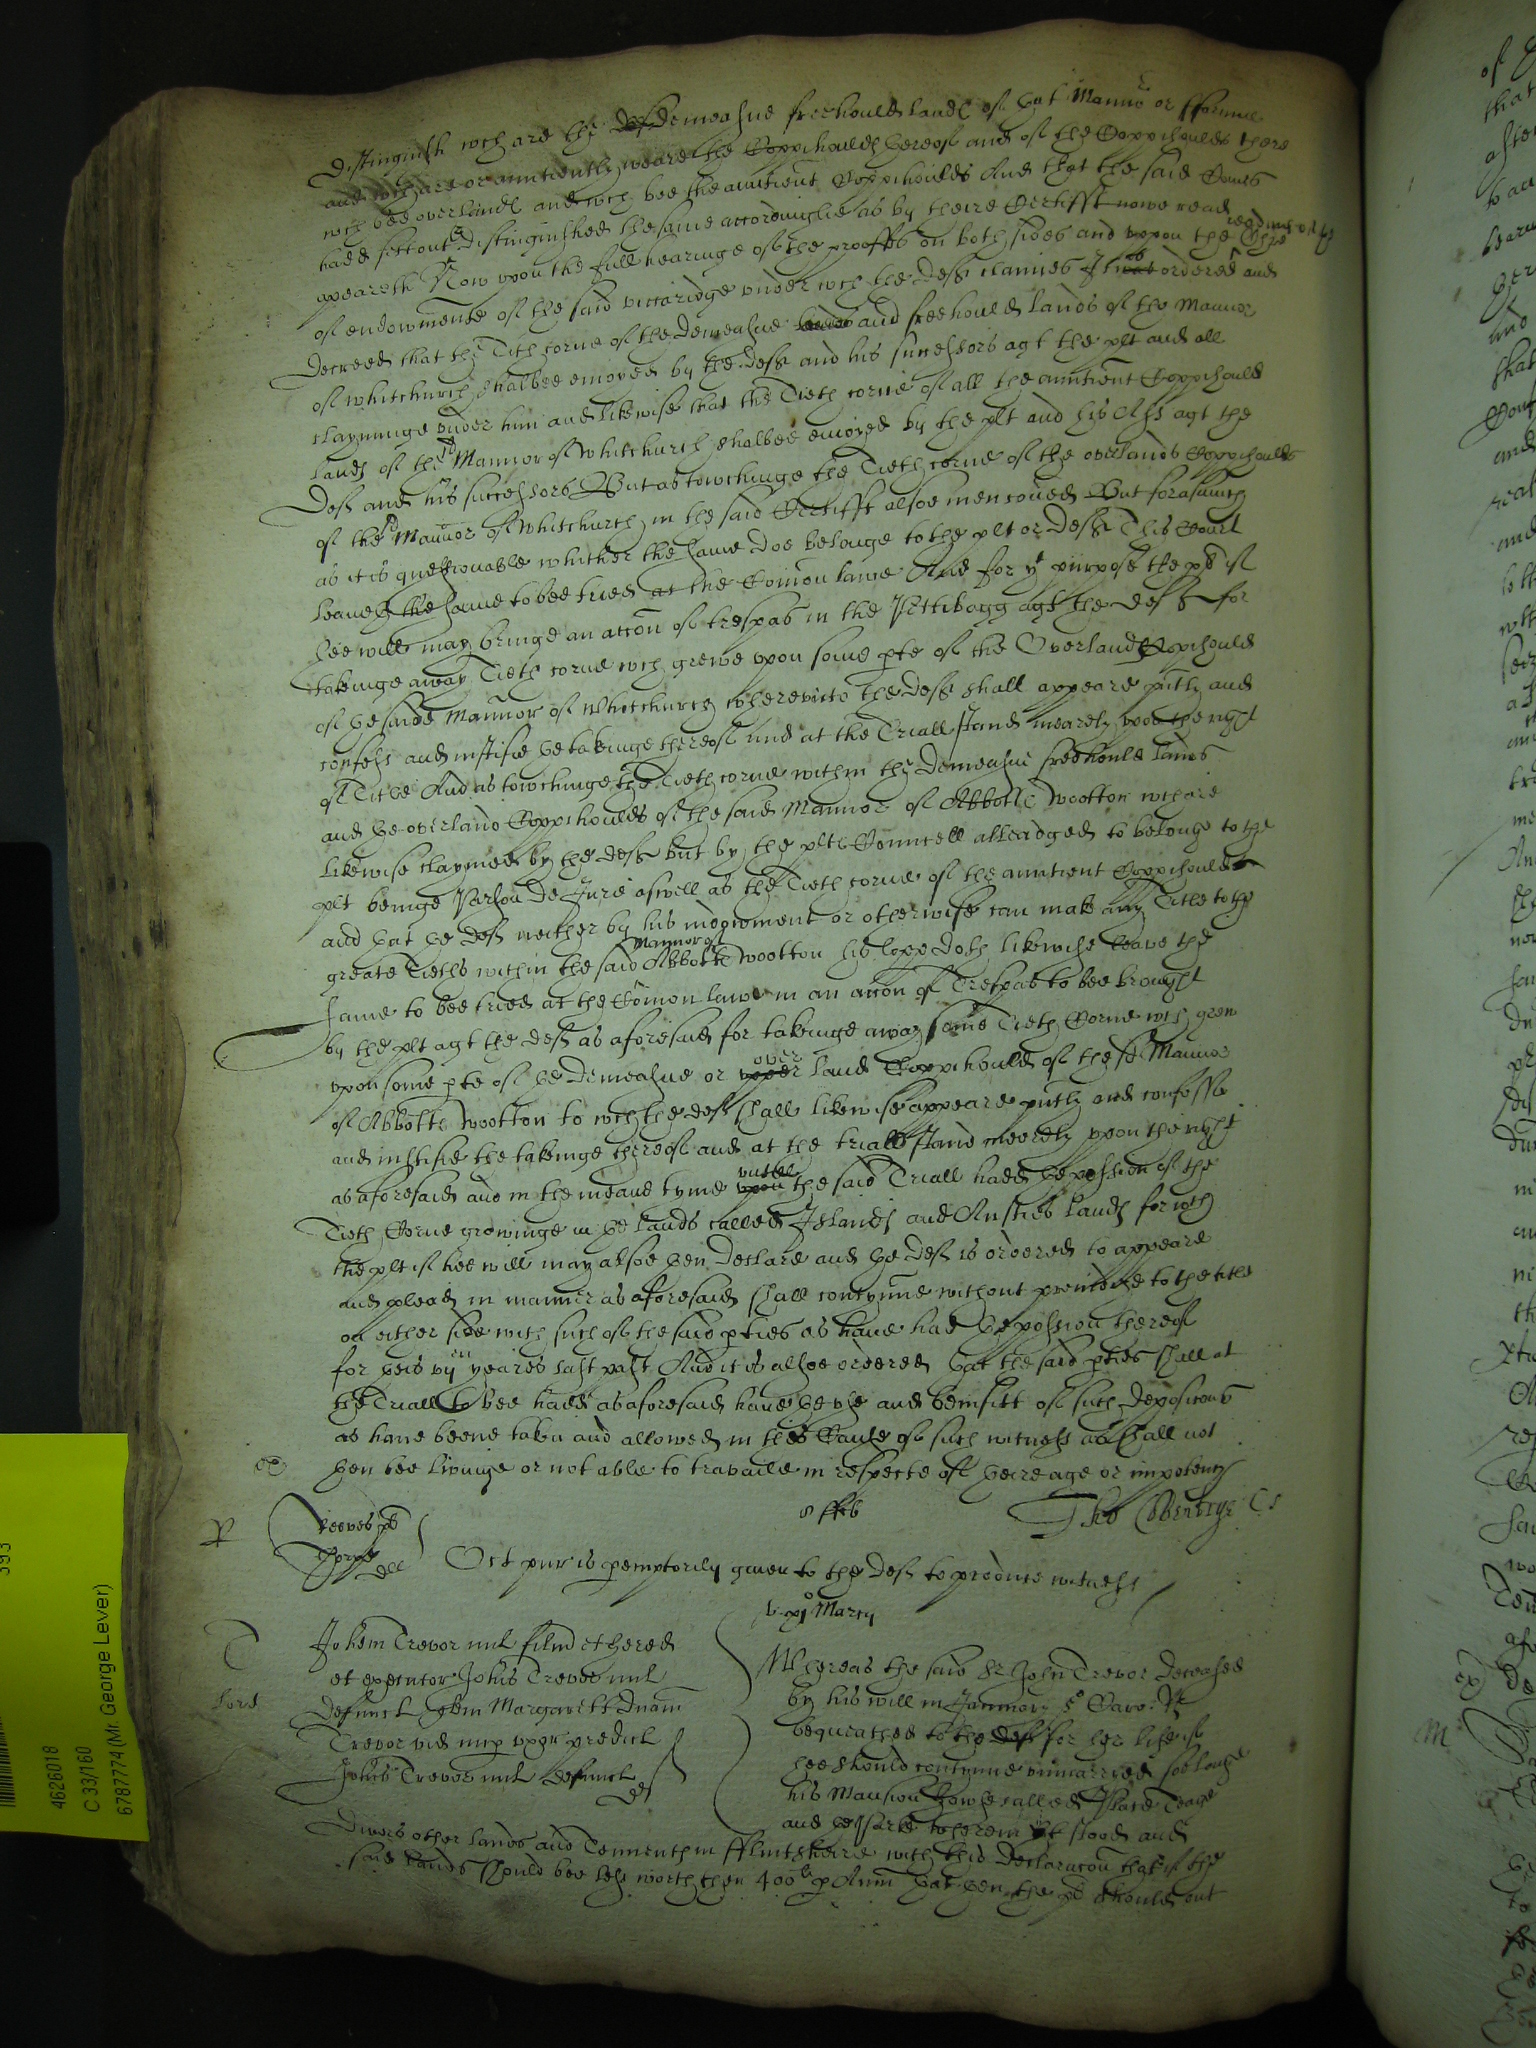 distinguish wch are the demeasne freehould lands of that Mannor or fferme
and wch are or aunciently weare the Coppihoulds thereof and of the Coppihoulds there
wch bee overlands and wch bee the auntient Coppihoulds And that the said Comrs
had sett out & distinguished the same accordinglie as by theire Certifft nowe read
apeareth Now upon the full hearinge of the prooffes on both sides and uppon the readinge of the
of endowmente of the said viccaridge under wch the deft claimes It is ordered and
decreed that the Tith corne of the demeasne and freehould lands of the Mannor
of Whitchurch shalbee enioyed by the deft and his successors agt the plt and all
clayminge under him and likewise that the Tieth corne of all the auntient Coppihould
lands of the sd Mannor of Whitchurch shalbee enioyed by the plt and his Ass agt the
Deft and his successors But as towchinge the Tieth corne of the overlands Coppihoulds
of the sd Mannor of Whitchurch in the said Certifft alsoe menconed But forasmuch
as it is questionable whither the same doe belonge to the plt or deft This Court
leaveth the same to bee tried at the Comon lawe And for yt purpose the plt if
hee will may bringe an accon of trespas in the Pettibagg agt the deft for
takeinge away Tieth corne wch grewe upon some pte of the Overland Coppihould
of the saide Mannor of Whitchurch wherevnto the deft shall appeare pntly and
confess and iustifie the takinge thereof and at the Triall stand mearely upon the right
of Title And as towchinge the Tieth corne within the demeasne freehould lands
and the overland Coppihoulds of the said Mannor of Abbotts Wootton wch are
likewise claymed by the deft but by the plts Councell alleadged to belonge to the
plt beinge Parson de Jure aswell as the Tieth corne of the auntient Coppihoulds
and that the deft neither by his indowment or otherwise can make any Title to the
greate Tieths within the said Mannor of Abbotts Wootton his lopp doth likewise leave the
same to bee tried at the Comon lawe in an accon of Trespas to bee brought
by the plt agt the deft as aforesaid for takeinge away some Tieth Corne wch grew
upon some pte of the demeasne or over land Coppihould of the sd Mannor
of Abbotts Wootton to wch the deft shall likewise appeare pntly and confesse
and iustifie the takeinge thereof and at the triall stand meerely upon the right
as aforesaid and in the meane tyme untill the said Triall hadd the possession of the
Tieth Corne growinge in the lands called Islands and Ansties lands for wch
the plt if hee will may alsoe then declare and the deft is ordered to appeare
and plead in manner as aforesaid shall contynue without preiudice to the title
on either side with such of the said pties as have had the possion thereof
for theis vij yeares last past And it is alsoe ordered that the said pties shall at
the Triall to bee hadd as aforesaid have the use and benifitt of such deposicons
as have beene taken and allowed in this Cause of such witness as shall not
then bee livinge or not able to travaile in respecte of theire age or impotency
8 ffeb
Tho Coventrye C S
R
Reeves plt
deft
Oct pur is pemptorily given to the deft to produce witness
Marcij
T
Johem Trevor mil filiu et hered
et executor Johis Trevor mil
defunct Margarett dnam
Trevor vid nup uxor predict
Johis Trevor mil defunct
deft
Whereas the said Sr John Trevor deceased
by his will in January 5o Caro: Rs
bequeathed to the deft for her life if
shee should contynue unmarried soe longe
his Mansion howse called Plase Teage
and the Parke wherein it stood and
divers other lands and Tenements in Fflintsheire with this declaracon that if the
said lands should bee less worth then 400li p Ann that then the plt should out
4626018
C 33/160
6787774 (Mr. George Lever)